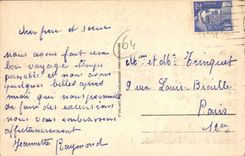 cher frère et soeur
nous avons fait un
bon voyage temps
passable et nous avons
quelques belles après
midi qui nous permette
de faire des excursions
nous vous embrassons
affectueusement
Jeannette Raymond
64
Mme et Mr Trinquet
9 rue Louis
Paris